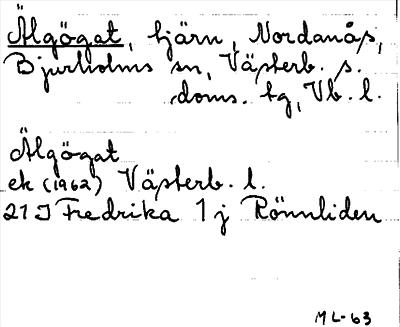 Älgögat, tjärn, Nordanås,
Bjurholms sn, Västerb. s.
doms. tg, Vb. l.
Älgögat
ek (1962) Västerb. l.
21 I Fredrika 1 j Rönnliden
ML-63